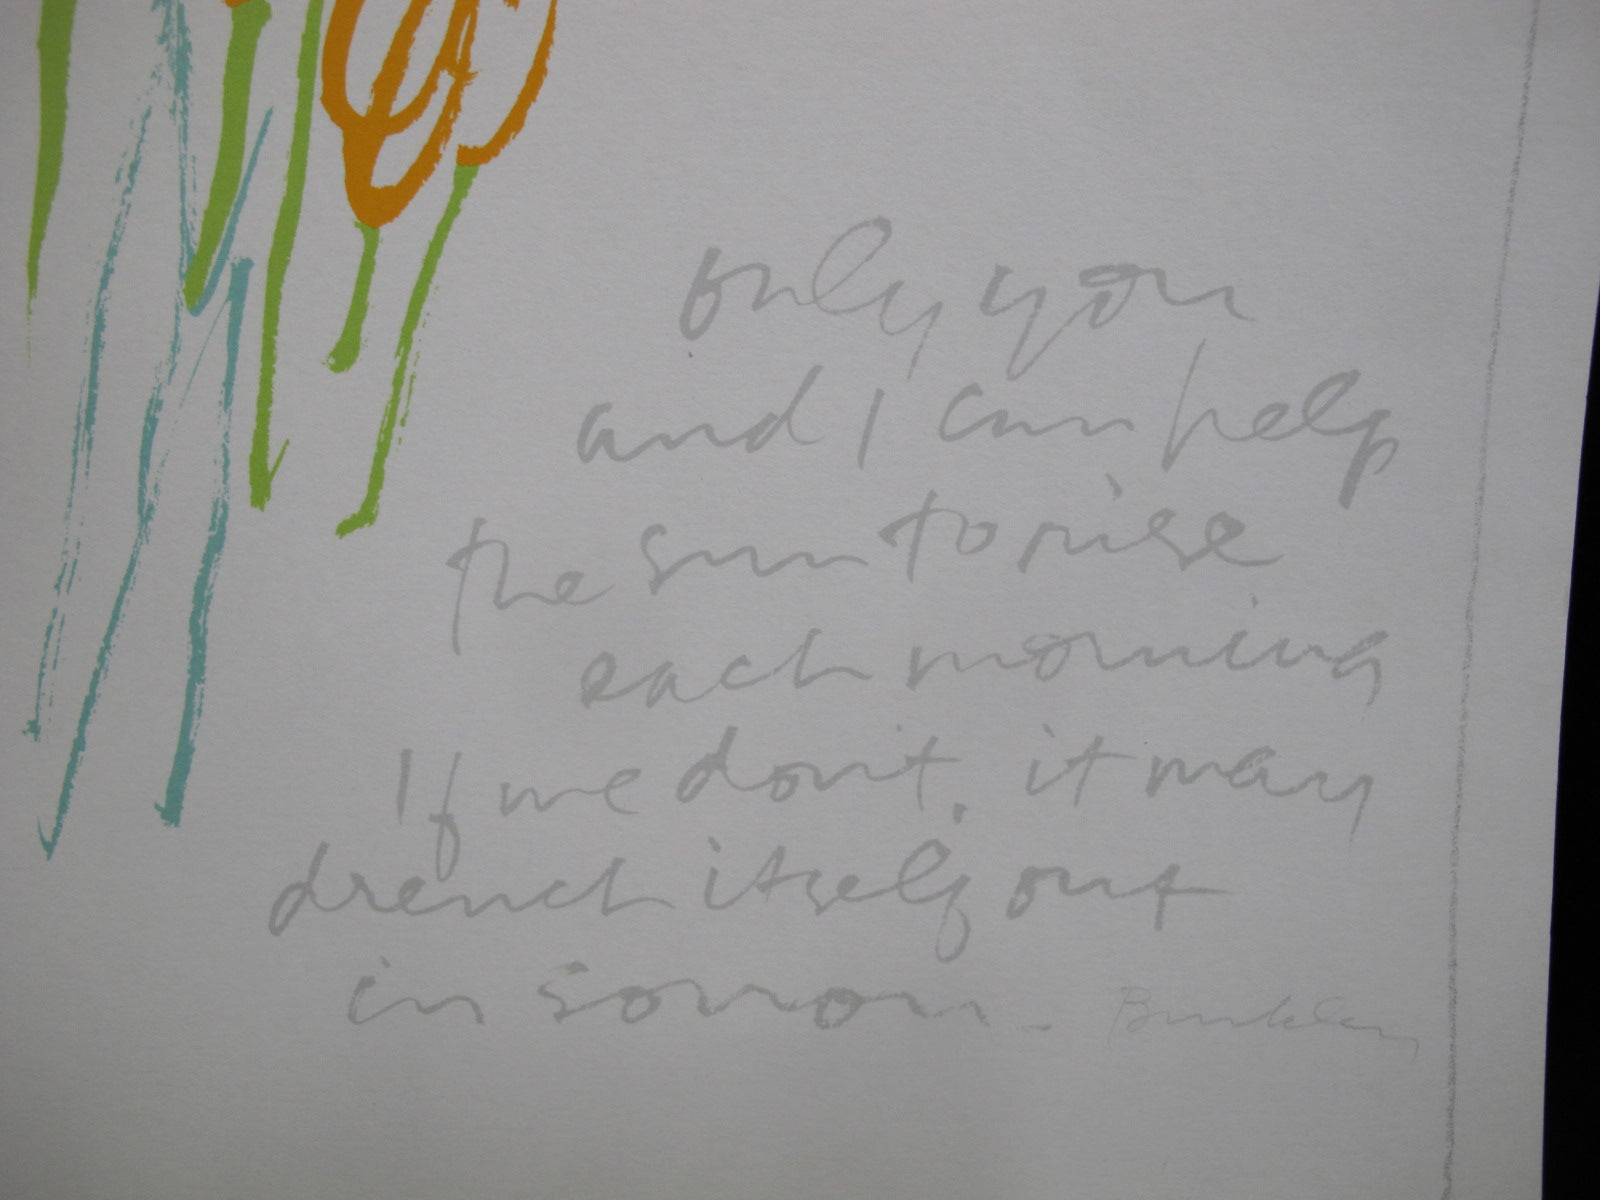 only you
and I can help
the sun to rise
each morning
If we don't, it may
drench itself out
in sorrow.